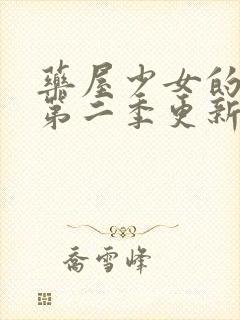 藥屋少女的
第二季更新
喬雪峰